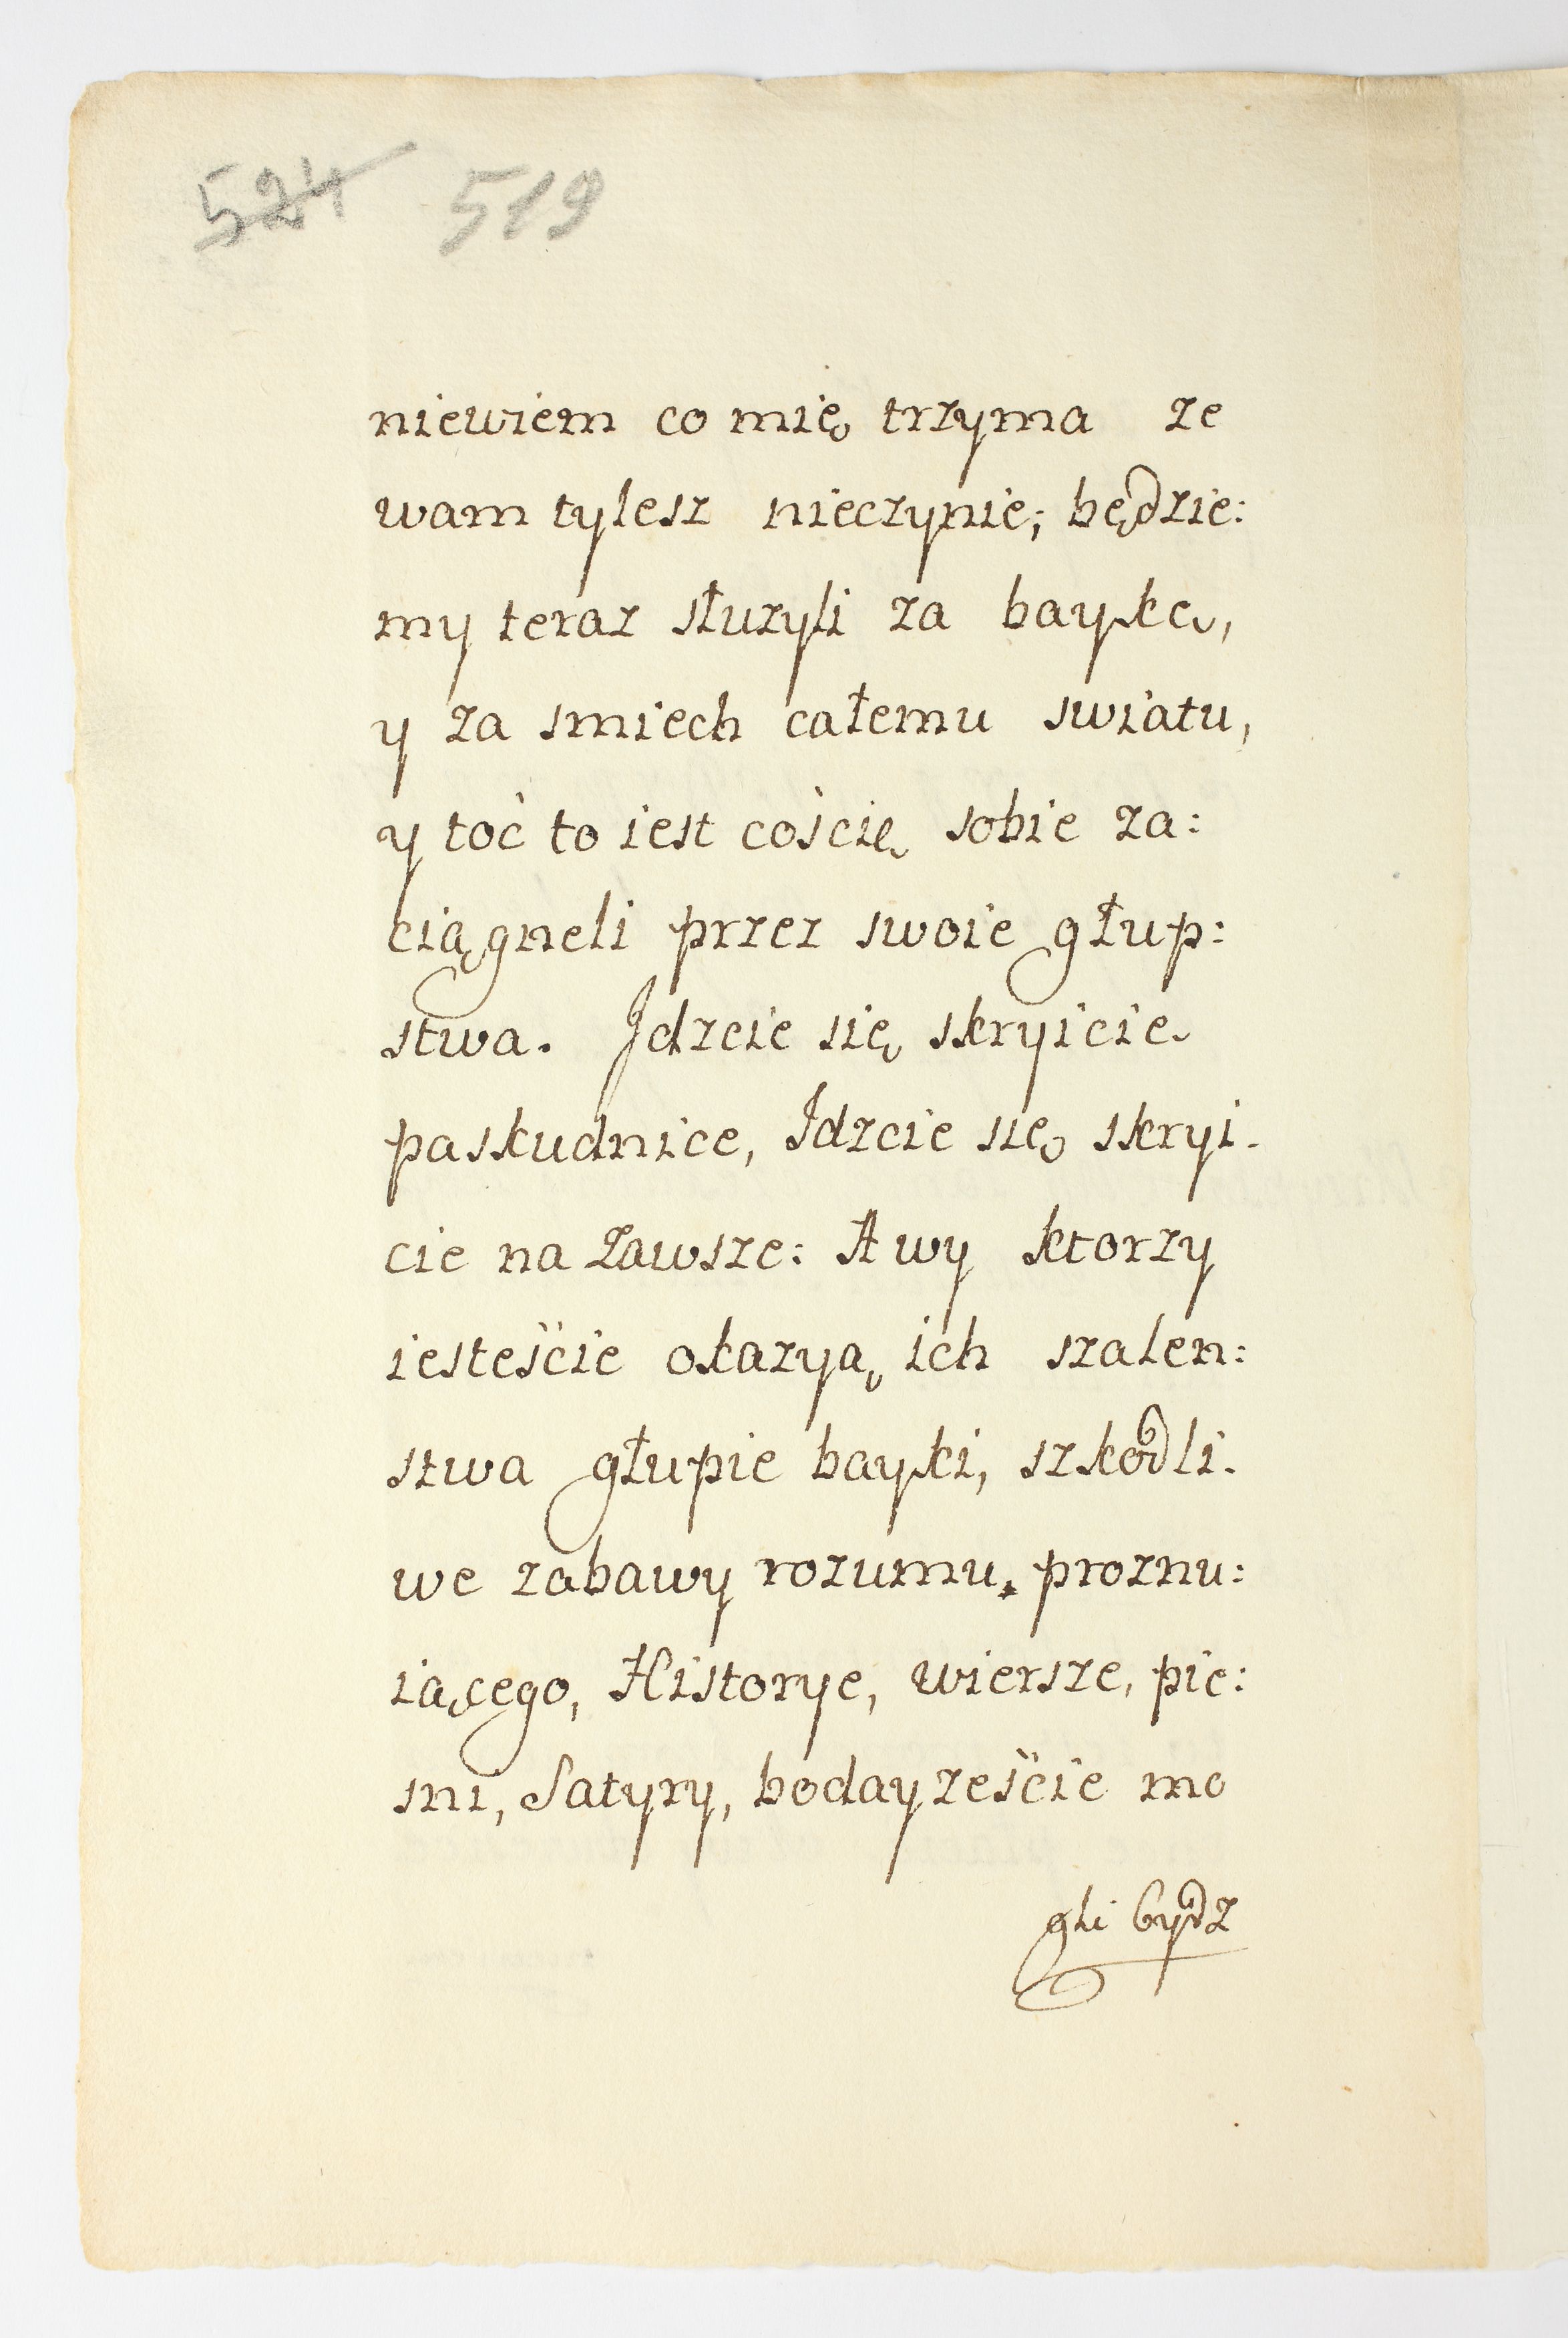 524 519
niewiem co mię trzyma ze
wam tylesz nieczynie; będzie:
my teraz służyli za baykę,
y za smiech całemu swiatu,
y toć to iest cościę sobie za:
ciągneli przez swoie głup:
stwa. Jdzcie się skryicie
paskudnice, Jdzcie się skryi.
cie na zawsze: A wy ktorzy
iesteście okazyą ich szalen:
stwa głupie bayki, szkodli.
we zabawy rozumu, proznu:
iącego, Historye, wiersze, pie:
sni, Satyry, bodayzeście mo
gli bydz